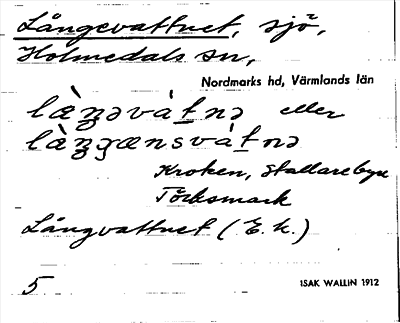 Långevattnet, sjö,
Holmedals sn,
Nordmarks hd, Värmlands län
eller
Kroken, Stallarebyn
Töcksmark
Långvattnet (E. k.)
5
ISAK WALLIN 1912